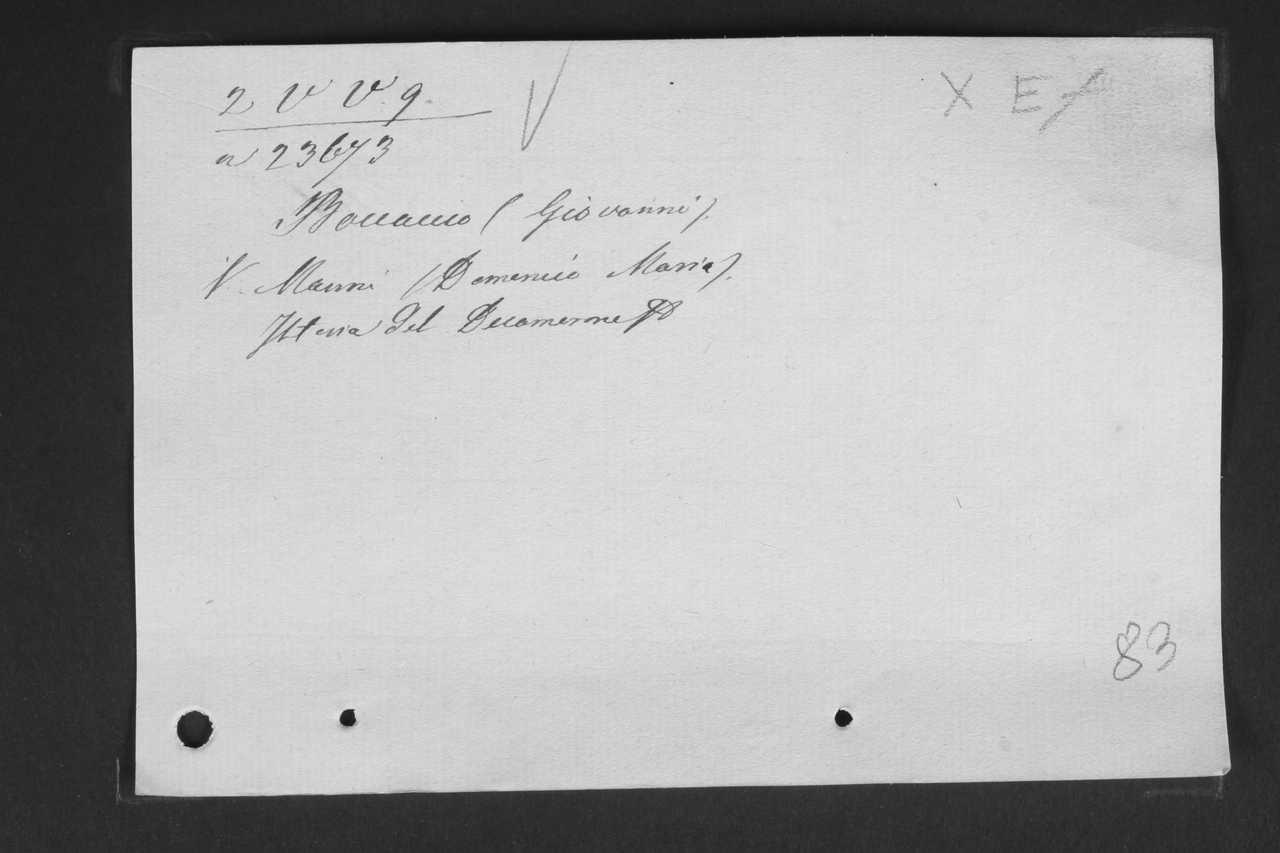 2 V V. 9.
V
X E
n 23673
Boccaccio (Giovanni).
V. Manni (Domenico Maria).
Istoria del Decamerone
83